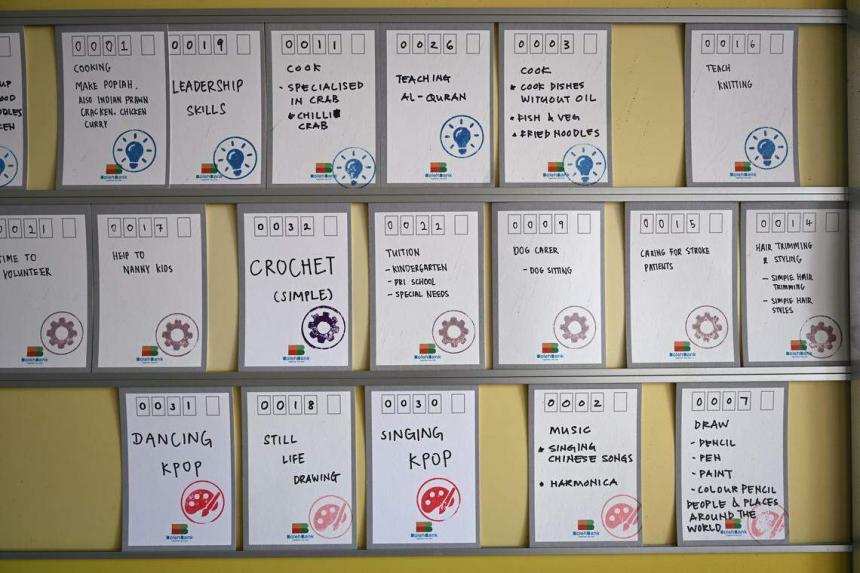 UP
OOD
ODLES
KEN
0001
COOKING
MAKE POPIAH.
ALSO INDIAN PRAWN
CRACKER. CHICKEN
CURRY
BolehBank
0019
LEADERSHIP
SKILLS
BolehBank
0011
COOK
- SPECIALISED
IN CRAB
CHILLI
CRAB
BolehBank
0026
TEACHING
AL-QURAN
BolehBank
0003
COOK
COOK DISHES
WITHOUT OIL
FISH & VEG
FRIED NOODLES
BolehBank
0016
TEACH
KNITTING
BolehBank
021
TIME TO
VOLUNTEER
BolehBank
0017
HELP TO
NANNY KIDS
BolehBank
0032
CROCHET
(SIMPLE)
BolehBank
0022
TUITION
- KINDERGARTEN
- PRI SCHOOL
- SPECIAL NEEDS
BolehBank
0009
DOG CARER
- DOG SITTING
BolehBank
0015
CARING FOR STROKE
PATIENTS
BolehBank
0014
HAIR TRIMMING
& STYLING
- SIMPLE HAIR
TRIMMING
- SIMPLE HAIR
STYLES
BolehBank
0031
DANCING
KPOP
BolehBank
0018
STILL
LIFE
DRAWING
BolehBank
0030
SINGING
KPOP
BolehBank
0002
MUSIC
SINGING
CHINESE SONGS
HARMONICA
BolehBank
0007
DRAW
- PENCIL
- PEN
- PAINT
- COLOUR PENCIL
PEOPLE & PLACES
AROUND THE
WORLD
BolehBank